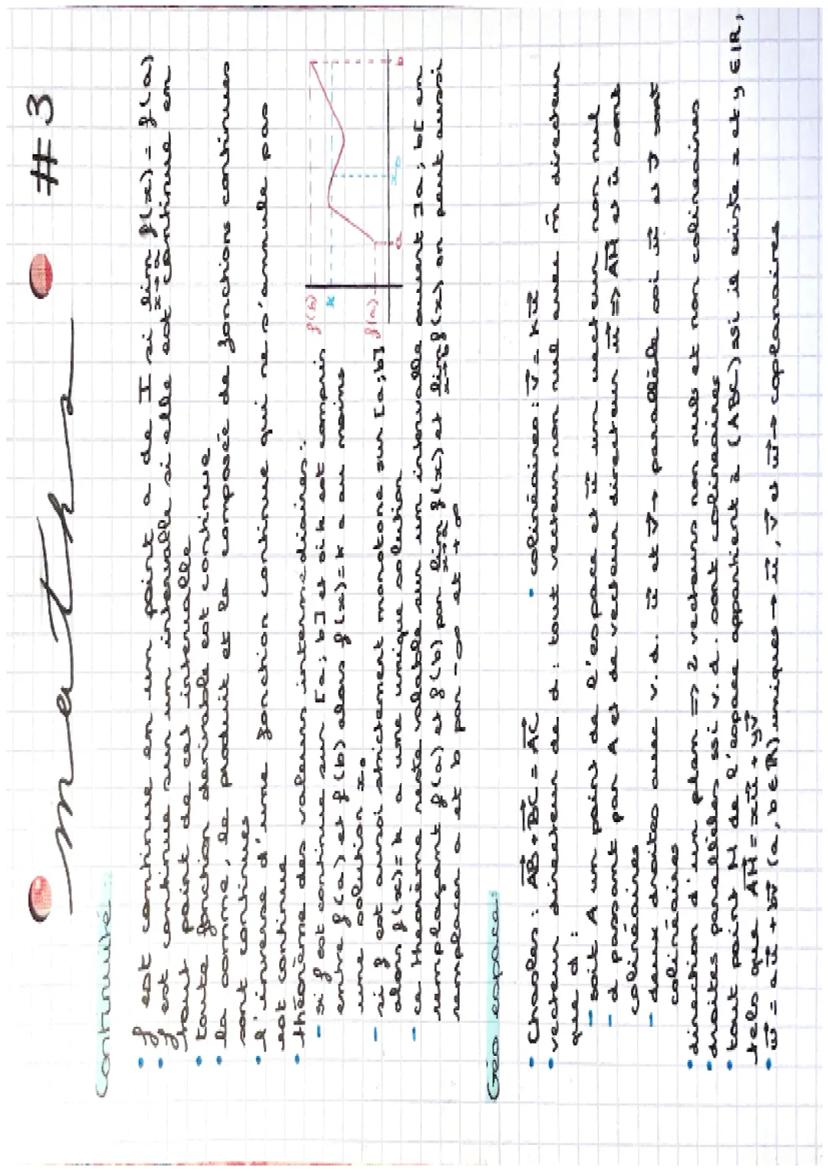 maths #3
Continuité :
• f est continue en un point a de I si lim f(x) = f(a)
x→a
• f est continue sur un intervalle si elle est continue en
tout point de cet intervalle
• toute fonction dérivable est continue
• la somme, le produit et la composée de fonctions continues
sont continues
• l'inverse d'une fonction continue qui ne s'annule pas
est continue
• théorème des valeurs intermédiaires :
- si f est continue sur [a;b] et si k est compris
entre f(a) et f(b) alors f(x)=k a au moins
une solution x₀
- si f est aussi strictement monotone sur [a;b]
alors f(x)=k a une unique solution
- ce théorème reste valable sur un intervalle ouvert ]a;b[ en
remplaçant f(a) et f(b) par lim f(x) et lim f(x) on peut aussi
x→a x→b
remplacer a et b par -∞ et +∞
f(b)
k
f(a)
a x₀ b
Géo espace :
• Chasles : AB⃗ + BC⃗ = AC⃗ • colinéaires : v⃗ = k u⃗
• vecteur directeur de d : tout vecteur non nul avec m̂ directeur
que d :
- soit A un point de l'espace et u⃗ un vecteur non nul
- d passant par A et de vecteur directeur u⃗ => AM⃗ et u⃗ sont
colinéaires
- deux droites avec v.d. u⃗ et v⃗ → parallèle ssi u⃗ et v⃗ sont
colinéaires
• direction d'un plan => 2 vecteurs non nuls et non colinéaires
• droites parallèles ssi v.d. sont colinéaires
• tout point M de l'espace appartient à (ABC) ssi il existe x et y ∈ ℝ,
tels que AM⃗ = xu⃗ + yv⃗
• w⃗ = au⃗ + bv⃗ (a, b ∈ ℝ) uniques → u⃗, v⃗ et w⃗ → coplanaires